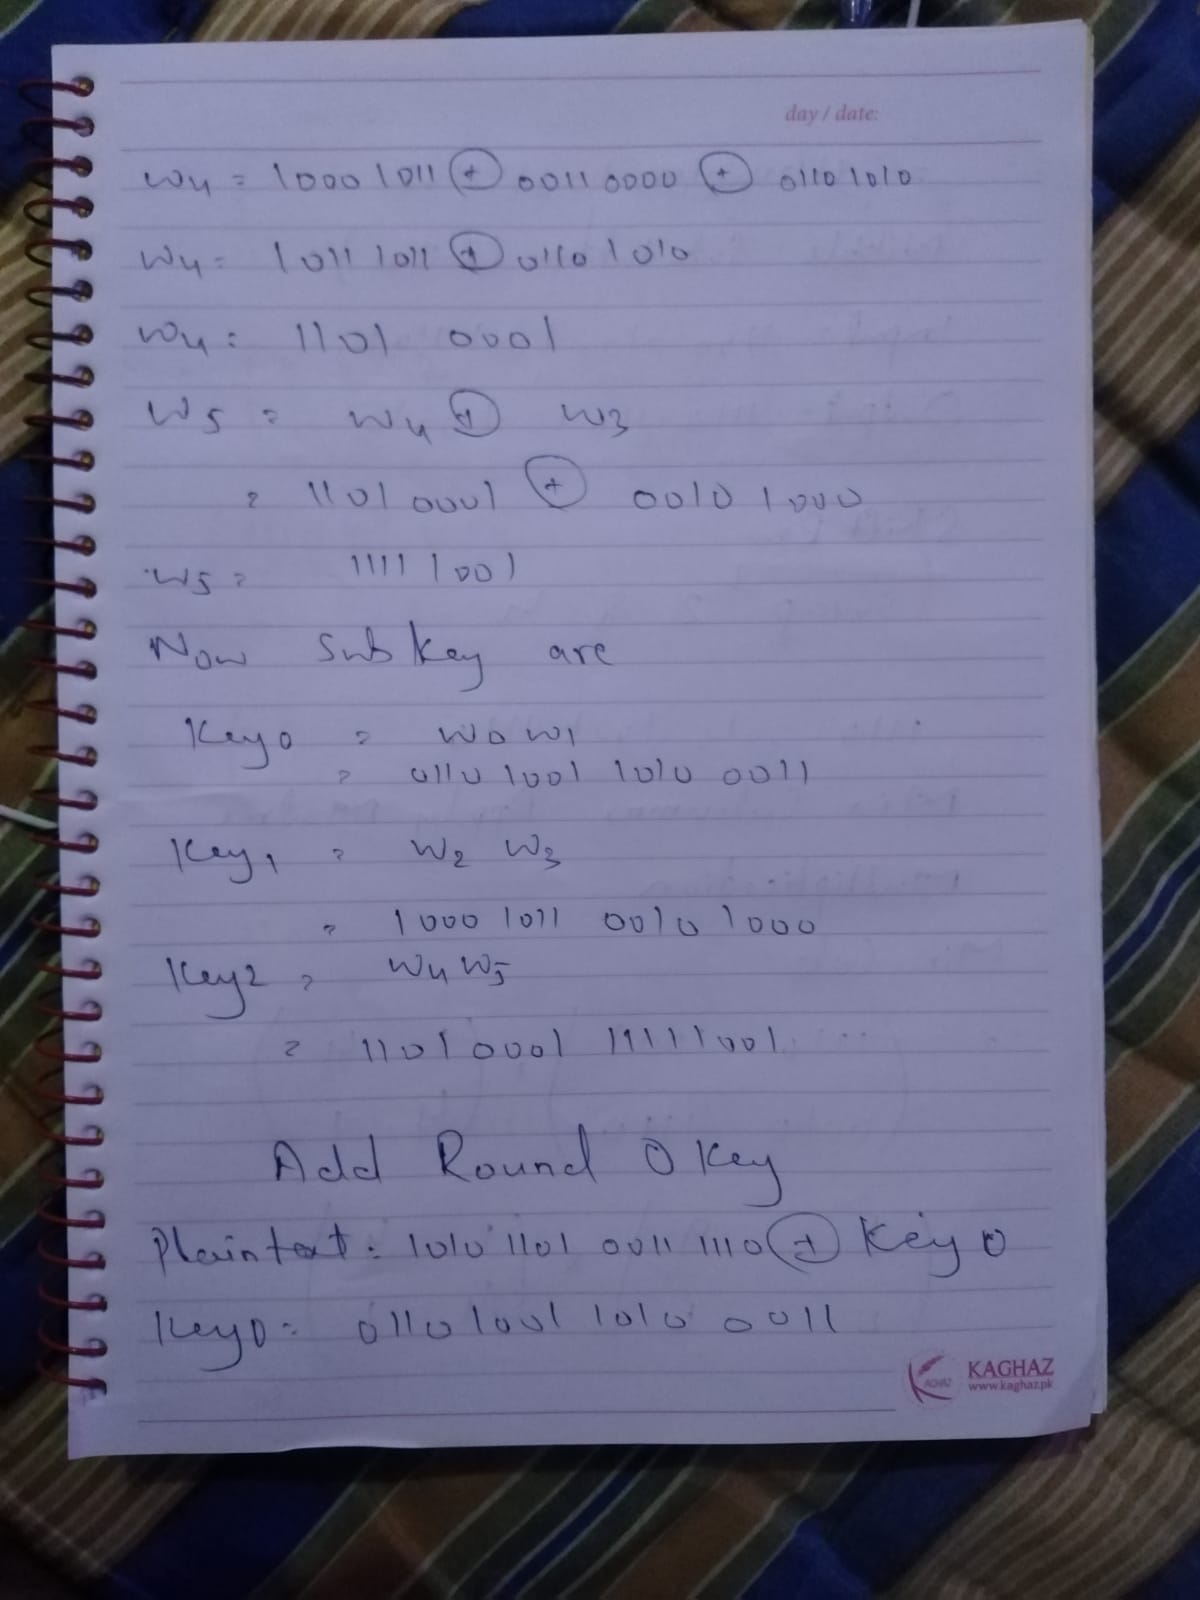 day / date:
W4 = 1000 1011 ⊕ 0011 0000 ⊕ 0110 1010
W4 = 1011 1011 ⊕ 0110 1010
W4 = 1101 0001
W5 = W4 ⊕ W3
= 1101 0001 ⊕ 0010 1000
W5 = 1111 1001
Now Sub Key are
Key0 = W0 W1
= 0110 1001 1010 0011
Key1 = W2 W3
= 1000 1011 0010 1000
Key2 = W4 W5
= 1101 0001 11111001
Add Round 0 Key
Plaintext: 1010 1101 0011 1110 ⊕ Key 0
Key0 = 0110 1001 1010 0011
KAGHAZ
www.kaghaz.pk